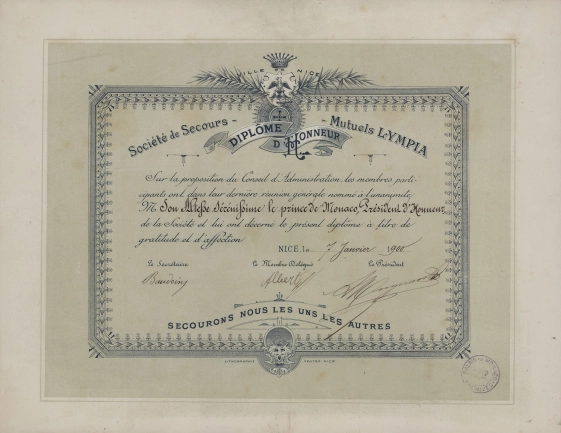 VILLE DE NICE
Société de Secours - Mutuels LYMPIA
DIPLÔME
D'HONNEUR
Sur la proposition du Conseil d'Administration, les membres parti-
cipants ont dans leur dernière réunion générale nommé à l'unanimité
M. Son Altesse Sérénissime le prince de Monaco, Président d'Honneur
de la Société et lui ont décerné le présent diplôme à titre de
gratitude et d'affection.
NICE, le 7 Janvier 1900
Le Secrétaire Le Membre Délégué Le Président
Albert
SECOURONS NOUS LES UNS LES AUTRES
LITHOGRAPHIE